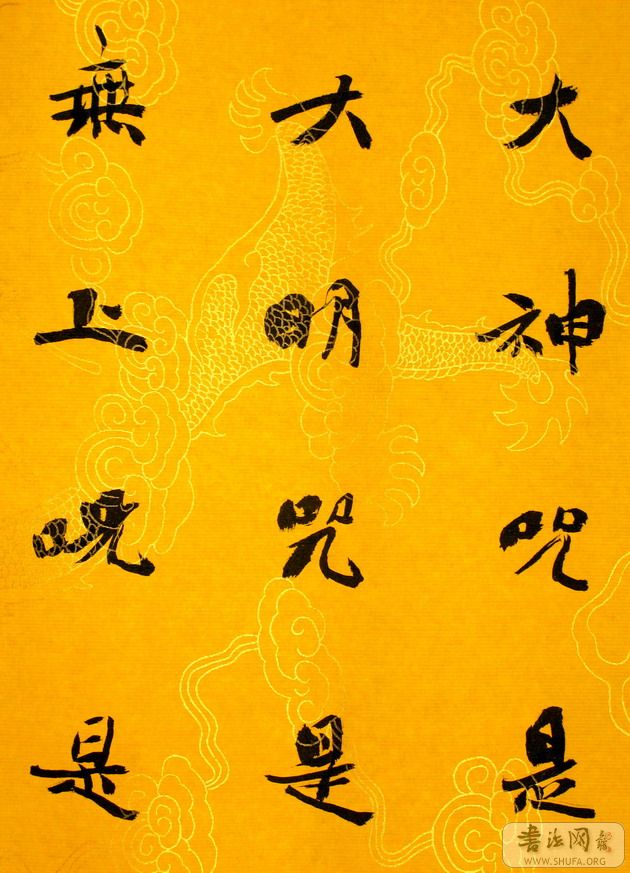 大神咒是
大明咒是
無上呪是
書法网
WWW.SHUFA.ORG